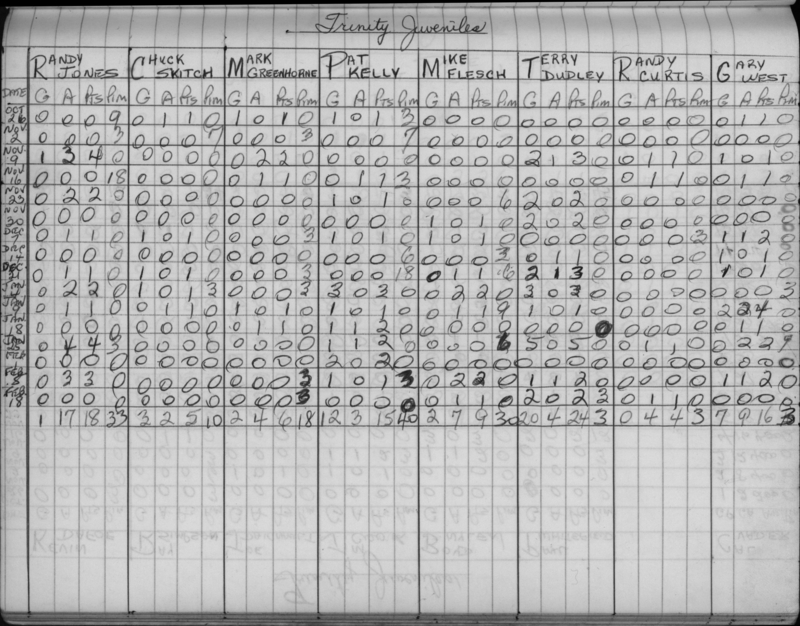 Trinity Juveniles
RANDY JONES CHUCK SKITCH MARK GREENHORNE PAT KELLY MIKE FLESCH TERRY DUDLEY RANDY CURTIS GARY WEST
DATE G A Pts Pim G A Pts Pim G A Pts Pim G A Pts Pim G A Pts Pim G A Pts Pim G A Pts Pim G A Pts Pim
OCT 26 0 0 0 9 0 1 1 0 1 0 1 0 1 0 1 3 0 0 0 0 0 0 0 0 0 0 0 0 0 1 1 0
NOV 2 0 0 0 3 0 0 0 7 0 0 0 3 0 0 0 7 0 0 0 0 0 0 0 0 0 0 0 0 0 0 0 0
NOV 9 1 3 4 0 0 0 0 0 0 2 2 0 0 0 0 0 0 0 0 0 2 1 3 0 0 1 1 0 1 0 1 0
NOV 16 0 0 0 18 0 0 0 0 0 1 1 0 0 1 1 3 0 0 0 0 0 0 0 0 0 1 1 0 0 1 1 0
NOV 23 0 2 2 0 0 0 0 0 0 0 0 0 1 0 1 0 0 0 0 6 2 0 2 0 0 0 0 0 0 0 0
NOV 30 0 0 0 0 0 0 0 0 0 0 0 0 0 0 0 0 1 0 1 0 2 0 2 0 0 0 0 0 0 0 0
DEC 0 1 1 0 1 0 1 0 0 0 0 3 1 0 1 0 1 0 1 0 0 0 0 0 0 0 0 3 1 1 2
DEC 14 0 0 0 0 0 0 0 0 0 0 0 0 0 0 0 6 0 0 0 3 0 1 1 0 0 0 0 0 1 0 1
DEC 21 0 1 1 0 1 0 1 0 0 0 0 3 0 0 0 18 0 1 1 6 2 1 3 0 0 0 0 0 1 0 1 0
JAN 0 2 2 0 1 0 1 3 0 0 0 3 3 0 3 0 0 2 2 0 3 0 3 0 0 0 0 0 0 0 0 3
JAN 0 1 1 0 0 1 1 0 1 0 1 0 1 0 1 0 0 1 1 9 1 0 1 0 0 0 0 0 2 2 4 0
JAN 18 0 0 0 0 0 0 0 0 0 1 1 0 1 1 2 0 0 0 0 0 0 0 0 0 0 0 0 0 0 1 1 0
JAN 0 4 4 3 0 0 0 0 0 0 0 0 1 1 2 0 0 0 0 6 5 0 5 0 0 1 1 0 0 2 2 9
0 0 0 0 0 0 0 0 0 0 0 0 2 0 2 0 0 0 0 0 0 0 0 0 0 0 0 0 0 0 0 0
FEB 0 3 3 0 0 0 0 0 0 0 0 3 1 0 1 3 0 2 2 0 1 1 2 0 0 0 0 0 1 1 2 0
FEB 18 0 0 0 0 0 0 0 0 0 0 0 3 0 0 0 0 0 1 1 0 2 0 2 3 0 1 1 0 0 0 0 0
1 17 18 33 3 2 5 10 2 4 6 18 12 3 15 40 2 7 9 30 20 4 24 3 0 4 4 3 7 9 16 3